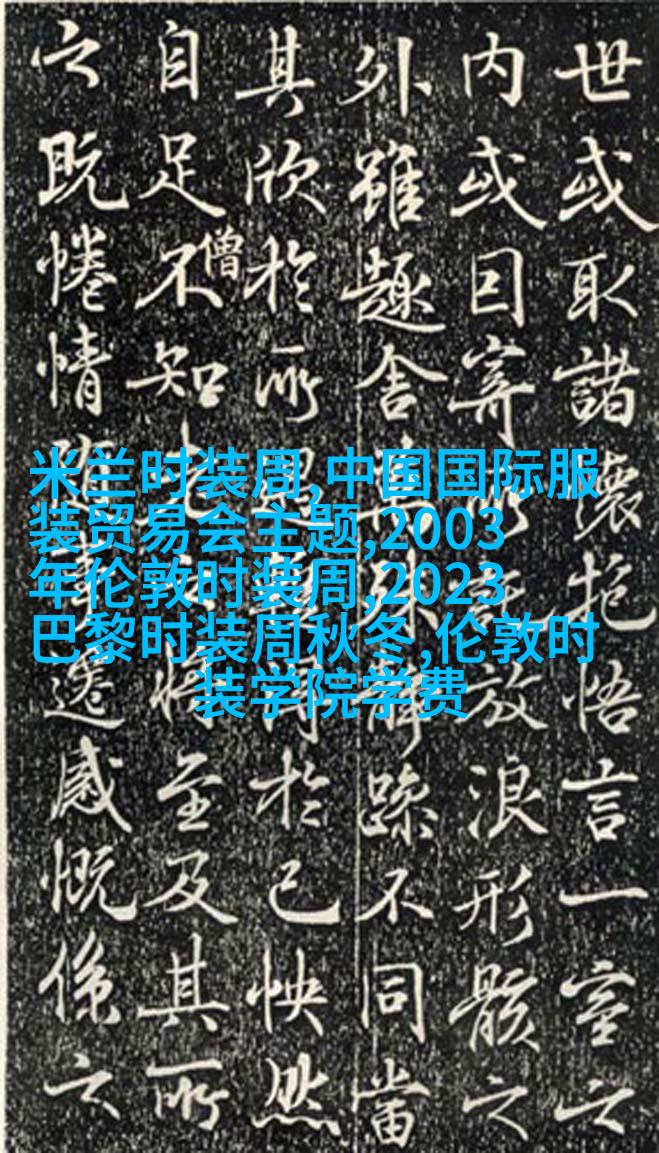 米兰时装周,中国国际服
装贸易会主题,2003
年伦敦时装周,2023
巴黎时装周秋冬,伦敦时
装学院学费
世或取諸懷抱悟言一室之
内或因寄所託放浪形骸之
外雖趣舍萬殊靜躁不同當
其欣於所遇暫得於己怏然
自足不知老之將至及其所
僧
之既惓情隨事遷感慨係之